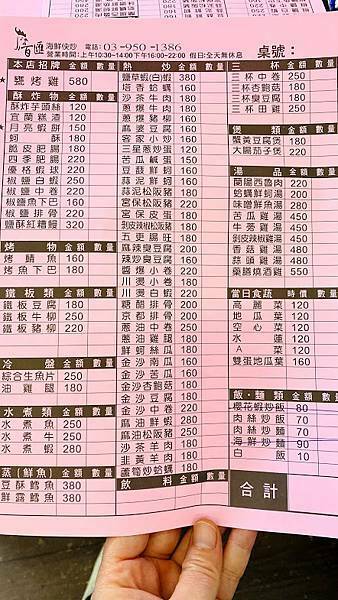 海鮮快炒 電話:03-950-1386
營業時間:上午10:30~14:00下午16:00~22:00 假日:全天無休息
桌號:
本店招牌 金額 數量
甕烤雞 580
酥炸物 金額 數量
酥炸芋頭絲 120
宜蘭糕渣 120
月亮蝦餅 150
蚵酥 180
脆皮肥腸 220
四季肥腸 220
優格蝦球 220
椒鹽白蝦 220
椒鹽中卷 220
椒鹽魚下巴 160
椒鹽排骨 220
鹽酥紅糟鰻 320
烤物 金額 數量
烤鯖魚 160
烤魚下巴 180
鐵板類 金額 數量
鐵板豆腐 180
鐵板牛柳 250
鐵板豬柳 220
冷盤 金額 數量
綜合生魚片 250
油雞腿 250
水煮類 金額 數量
水煮魚 250
水煮牛 250
水煮蝦 280
蒸(鮮魚) 金額 數量
豆酥鱈魚 380
鮮露鱈魚 380
熱炒 金額 數量
鹽草蝦(白蝦) 380
塔香蛤蠣 160
沙茶牛肉 180
蔥爆牛肉 180
蔥爆豬柳 160
麻婆豆腐 160
客家小炒 160
三星蔥炒蛋 120
苦瓜鹹蛋 150
豆豉鮮蚵 180
蒜泥鮮蚵 180
蒜泥松阪豬 220
宮保松阪豬 220
宮保皮蛋 180
剝皮辣椒松阪豬 220
五更腸旺 180
麻辣臭豆腐 180
辣炒臭豆腐 160
醬爆小卷 220
川燙小卷 180
川燙白蝦 220
糖醋排骨 200
京都排骨 200
蔥油中卷 250
蔥油雞腿 180
鮮蚵絲瓜 180
金沙南瓜 160
金沙苦瓜 160
金沙杏鮑菇 180
金沙豆腐 180
金沙中卷 220
麻油鮮蝦 280
麻油松阪豬 250
沙茶羊肉 180
韭黃羊肉 180
蘆筍炒蛤蠣 180
飲料 金額 數量
三杯 金額 數量
三杯中卷 250
三杯杏鮑菇 180
三杯臭豆腐 180
三杯田雞 250
煲類 金額 數量
蟹黃豆腐煲 180
大腸茄子煲 220
湯品 金額 數量
蘭陽西魯肉 220
蛤蠣鮮蚵湯 200
味噌鮮魚湯 280
苦瓜雞湯 450
牛蒡雞湯 450
剝皮辣椒雞湯 450
香菇雞湯 450
蒜頭雞湯 480
藥膳燒酒雞 550
當日食蔬 時價 數量
高麗菜 120
地瓜葉 120
空心菜 120
水蓮 120
A菜 120
雙蛋地瓜葉 160
飯・麵類 金額 數量
櫻花蝦炒飯 80
肉絲炒飯 70
肉絲炒麵 70
海鮮炒麵 90
白飯 10
合計